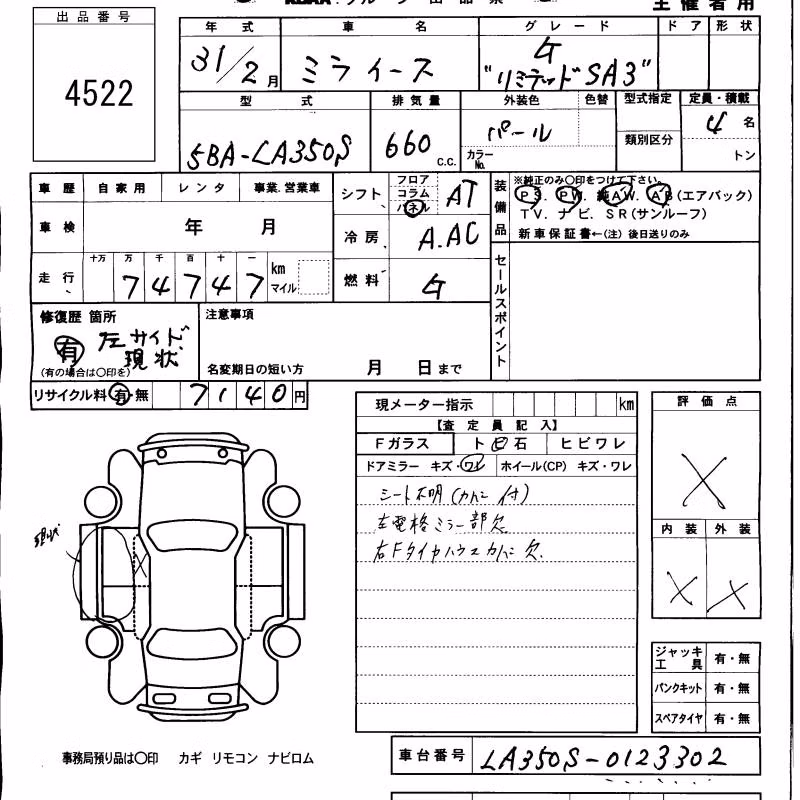 出品番号
4522
主催者用
年式 車名 グレード ドア 形状
31/2月 ミライース G "リミテッドSA3"
型式 排気量 外装色 色替 型式指定 定員・積載
5BA-LA350S 660 c.c. パール カラーNo. 類別区分 4名
トン
車歴 自家用 レンタ 事業.営業車
シフト フロア コラム パネル AT
装備品 ※純正のみ〇印をつけて下さい。
PS. PW. 純AW. AB(エアバック)
TV. ナビ. SR(サンルーフ)
新車保証書←(注)後日送りのみ
車検 年 月
冷房 A.AC
走行 十万 万 千 百 十 一
74747 km マイル
燃料 G
セールスポイント
修復歴 箇所
有 左サイド
現状
(有の場合は〇印を)
注意事項
名変期日の短い方 月 日まで
リサイクル料 有 無 7140円
現メーター指示 km
【査定員記入】
Fガラス ト 石 ヒビワレ
ドアミラー キズ・ワレ ホイール(CP) キズ・ワレ
シート不明(カバー付)
左電格ミラー部欠
右Fタイヤハウスカバー欠
評価点
X
内装 外装
X X
現状
ジャッキ工具 有・無
パンクキット 有・無
スペアタイヤ 有・無
事務局預り品は〇印 カギ リモコン ナビロム
車台番号 LA350S-0123302